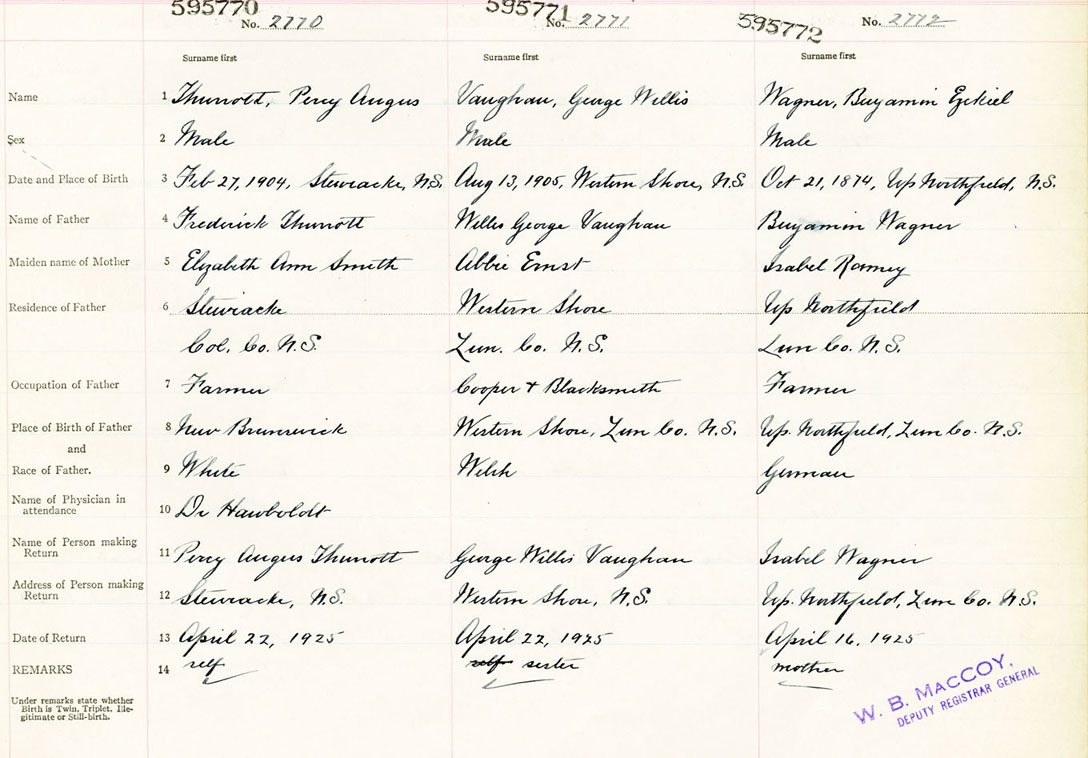 595770 595771 595772
No. 2770 No. 2771 No. 2772
Surname first Surname first Surname first
Name 1 Thurrott, Percy Angus Vaughan, George Willis Wagner, Benjamin Ezekiel
Sex 2 Male Male Male
Date and Place of Birth 3 Feb 27, 1904, Stewiacke, N.S. Aug 13, 1905, Western Shore, N.S. Oct 21, 1874, Up Northfield, N.S.
Name of Father 4 Frederick Thurrott Willis George Vaughan Benjamin Wagner
Maiden name of Mother 5 Elizabeth Ann Smith Abbie Ernst Isabel Ramey
Residence of Father 6 Stewiacke Western Shore Up Northfield
Col. Co. N.S. Lun. Co. N.S. Lun Co. N.S.
Occupation of Father 7 Farmer Cooper & Blacksmith Farmer
Place of Birth of Father 8 New Brunswick Western Shore, Lun Co. N.S. Up. Northfield, Lun Co. N.S.
and
Race of Father. 9 White Welsh German
Name of Physician in
attendance 10 Dr Hawboldt
Name of Person making
Return 11 Percy Angus Thurrott George Willis Vaughan Isabel Wagner
Address of Person making
Return 12 Stewiacke, N.S. Western Shore, N.S. Up. Northfield, Lun Co. N.S.
Date of Return 13 April 22, 1925 April 22, 1925 April 16, 1925
REMARKS 14 self self sister mother
Under remarks state whether
Birth is Twin, Triplet, Ille-
gitimate or Still-birth.
W. B. MACCOY,
DEPUTY REGISTRAR GENERAL